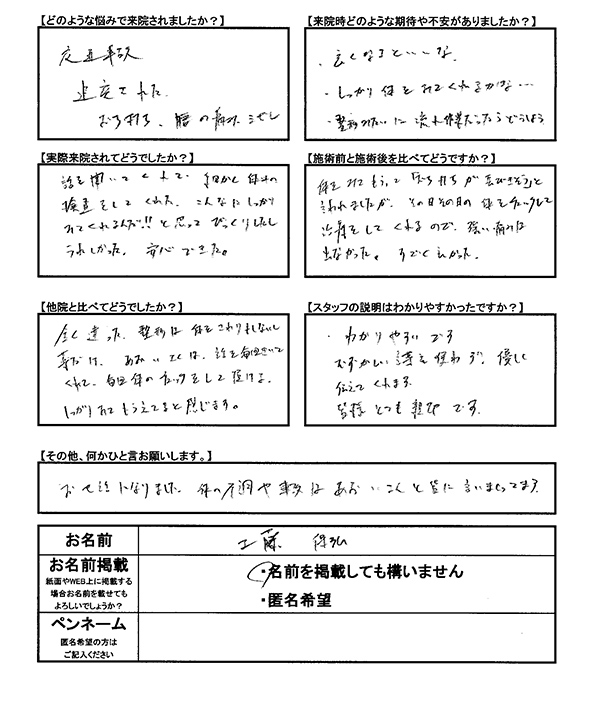 【どのような悩みで来院されましたか？】
交通事故
追突された
むち打ち、腰の痛み
【来院時どのような期待や不安がありましたか？】
・良くなるといいな。
・しっかり体をみてくれるかな…
・整形みたいに流れ作業だったらどうしよう
【実際来院されてどうでしたか？】
話を聞いてくれて、細かく体の
検査をしてくれた。こんなにしっかり
みてくれるんだ!!と思ってびっくりしたし
うれしかった。安心できた。
【施術前と施術後を比べてどうですか？】
体をみてもらって「むち打ちが長びきそう」と
言われましたが、その日その日の体をチェックして
治療をしてくれるので、強い痛みは
出なかった。すごく良かった。
【他院と比べてどうでしたか？】
全く違った。整形は体をさわりもしないし
くれて、毎回体のチェックをして頂ける。
しっかりみてもらえてると感じます。
【スタッフの説明はわかりやすかったですか？】
・わかりやすいです
むずかしい言葉を使わず、優しく
伝えてくれます。
皆様とても親切です。
【その他、何かひと言お願いします。】
お世話になりました。体の不調や事故はあおいさんと皆に言いまわってます。
お名前
工藤
お名前掲載
紙面やWEB上に掲載する
場合お名前を載せても
よろしいでしょうか？
・名前を掲載しても構いません
・匿名希望
ペンネーム
匿名希望の方は
ご記入ください